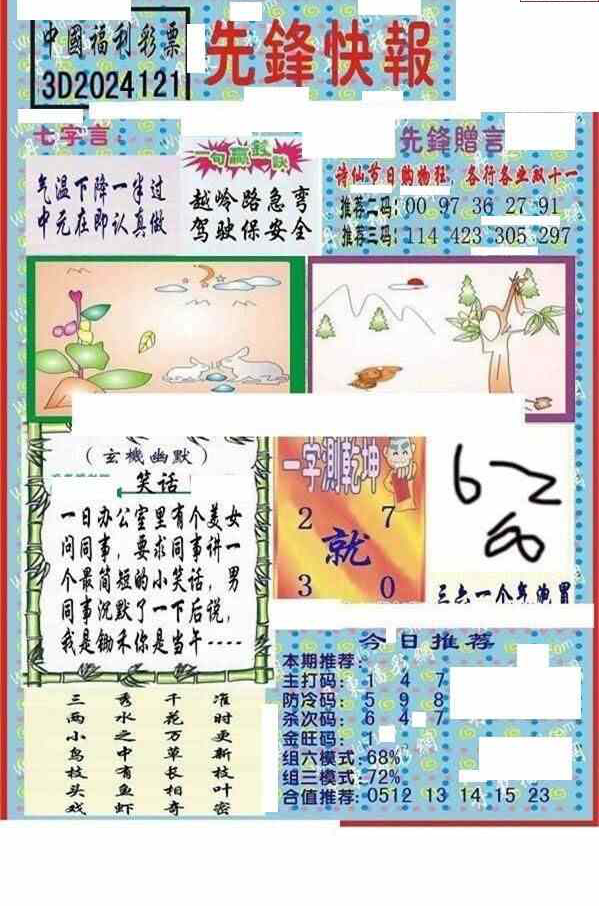 中國福利彩票
3D2024121
先鋒快報
七字言：
气温下降一半过
中元在即认真做
一句赢錢訣
越岭路急弯
驾驶保安全
先鋒贈言
诗仙节日购物狂，各行各业双十一
推荐二码：00 97 36 27 91
推荐三码：114 423 305 297
（玄機幽默）
笑话
一日办公室里有个美女
问同事，要求同事讲一
个最简短的小笑话，男
同事沉默了一下后说，
我是锄禾你是当午----
一字測乾坤
2 7
就
3 0
三点一个气泡冒
三两小鸟枝头戏
秀水之中有鱼虾
千花万草长相奇
准时更新枝叶密
今日推荐
本期推荐：
主打码：1 4 7
防冷码：5 9 8
杀次码：6 4 7
金旺码：1
组六模式：68%
组三模式：72%
合值推荐：0512 13 14 15 23